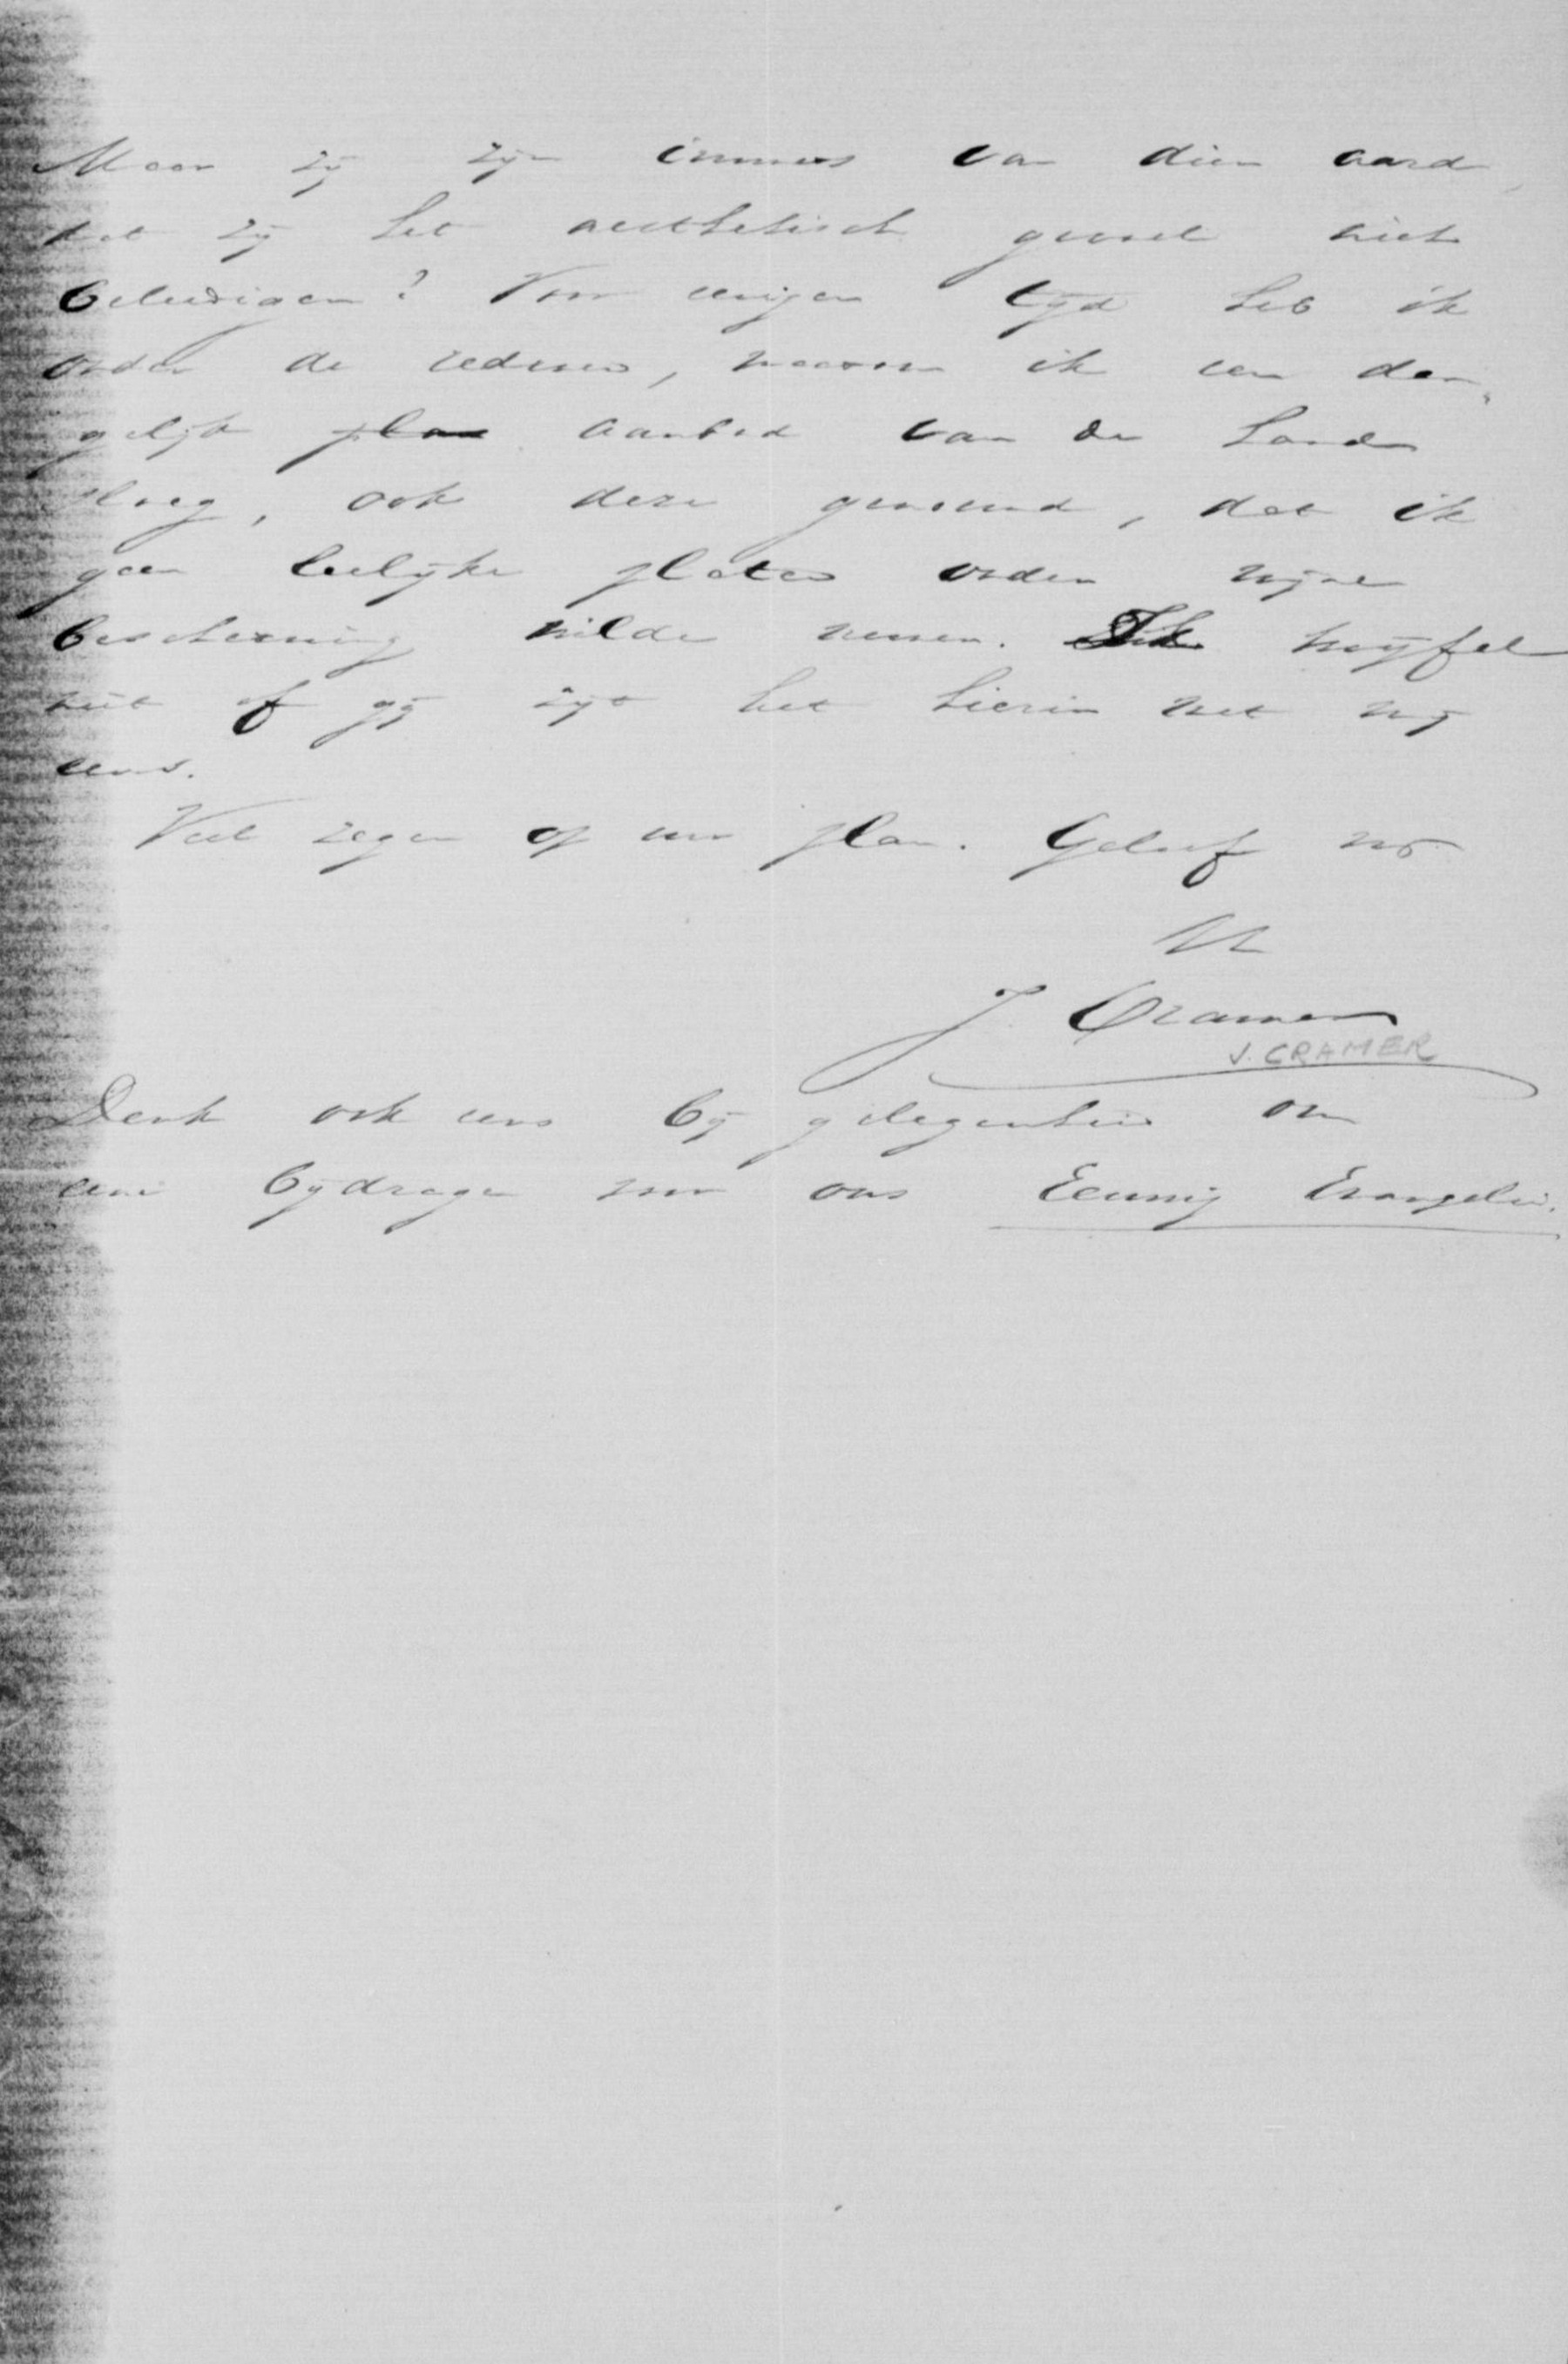 Maar zij zijn immers van dien aard,
dat zij het aesthetisch gevoel niet
beleedigen? Voor eenigen tijd heb ik
onder de redenen, waarom ik een der„
gelijk plan aanbod van de hand
sloeg, ook deze genoemd, dat ik
geen leelijke platen onder mijne
bescherming wilde nemen. Ik twijfel
niet of gij zijt het hierin met mij
eens.
Veel zegen op uw plan. Geloof mij
J Cramer
J. CRAMER
Denk ook eens bij gelegenheid om
eene bijdrage voor ons Eeuwig Evangelie.